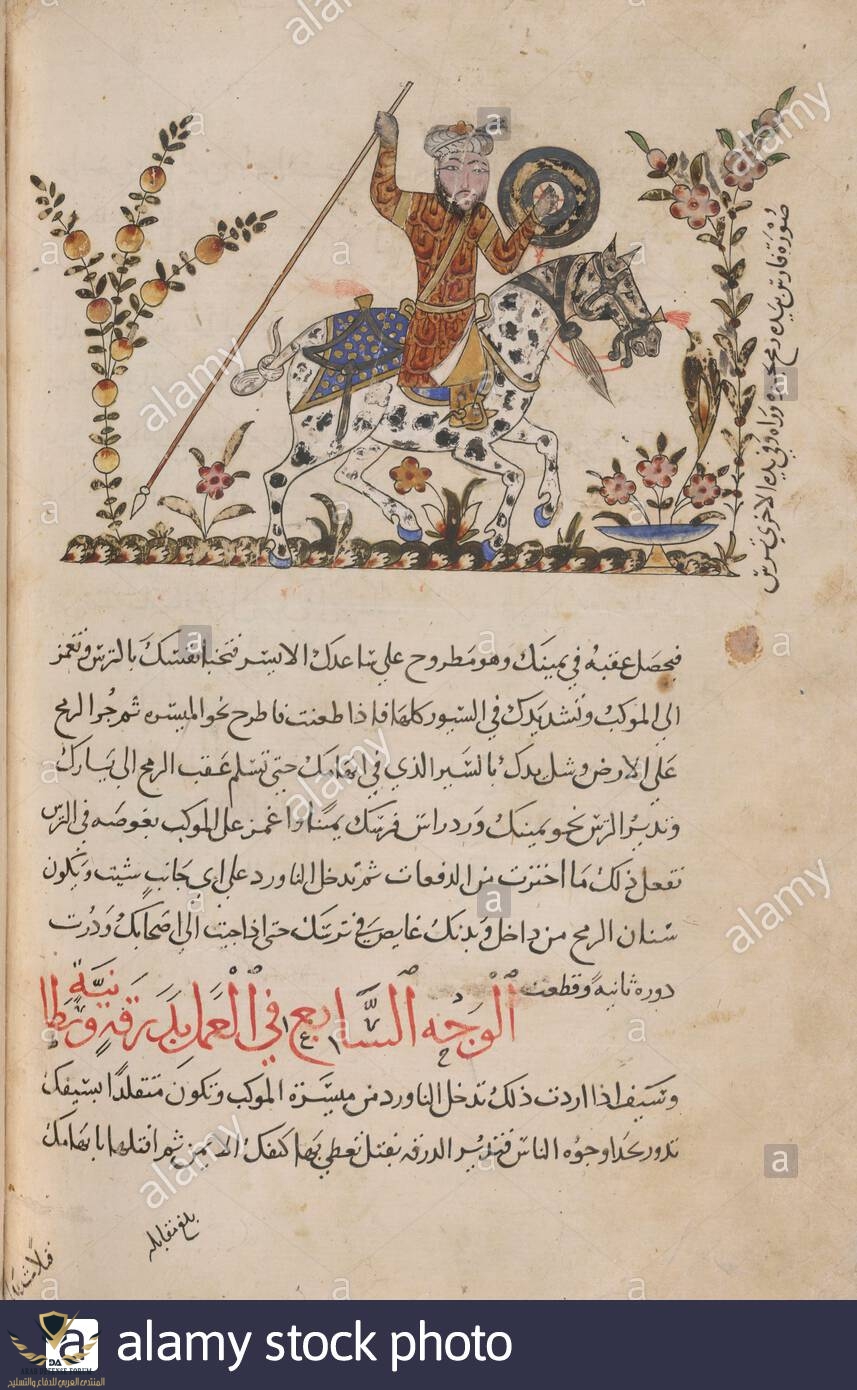 صورة فارس بيده رمح يجره وراه وفي يده الاخرى ترس
فيحصل عقبه في يمينك وهو مطروح على ساعدك الايسر فتخبا نفسك بالترس وتغمز
الى الموكب وتشد يدك في السيور كلها فاذا طعنت فاطرح نحو الميسره ثم جر الرمح
على الارض وشل يدك بالسير الذي في ابهامك حتى تسلم عقب الرمح الى يسارك
وتدير الترس نحو يمينك ورد راس فرسك يمينا واغمز على الموكب بغوصه في الترس
تفعل ذلك ما اخترت من الدفعات ثم تدخل الناورد على اي جانب شيت ويكون
سنان الرمح من داخل وبدنك غايص في ترسك حتى اذا جيت الى اصحابك ودرت
دوره ثانية وقطعت
الوجه السابع في العمل بدرقة وبطانية
وسيف اذا اردت ذلك تدخل الناورد من ميسرة الموكب وتكون متقلدا بسيفك
تدور بحدا وجوه الناس فتدير الدرقه بفتل تعطي بها كتفك الايمن ثم افتلها بابهامك
بلغ مقابله
alamy stock photo
المنتدى العربي للدفاع والتسليح
alamy